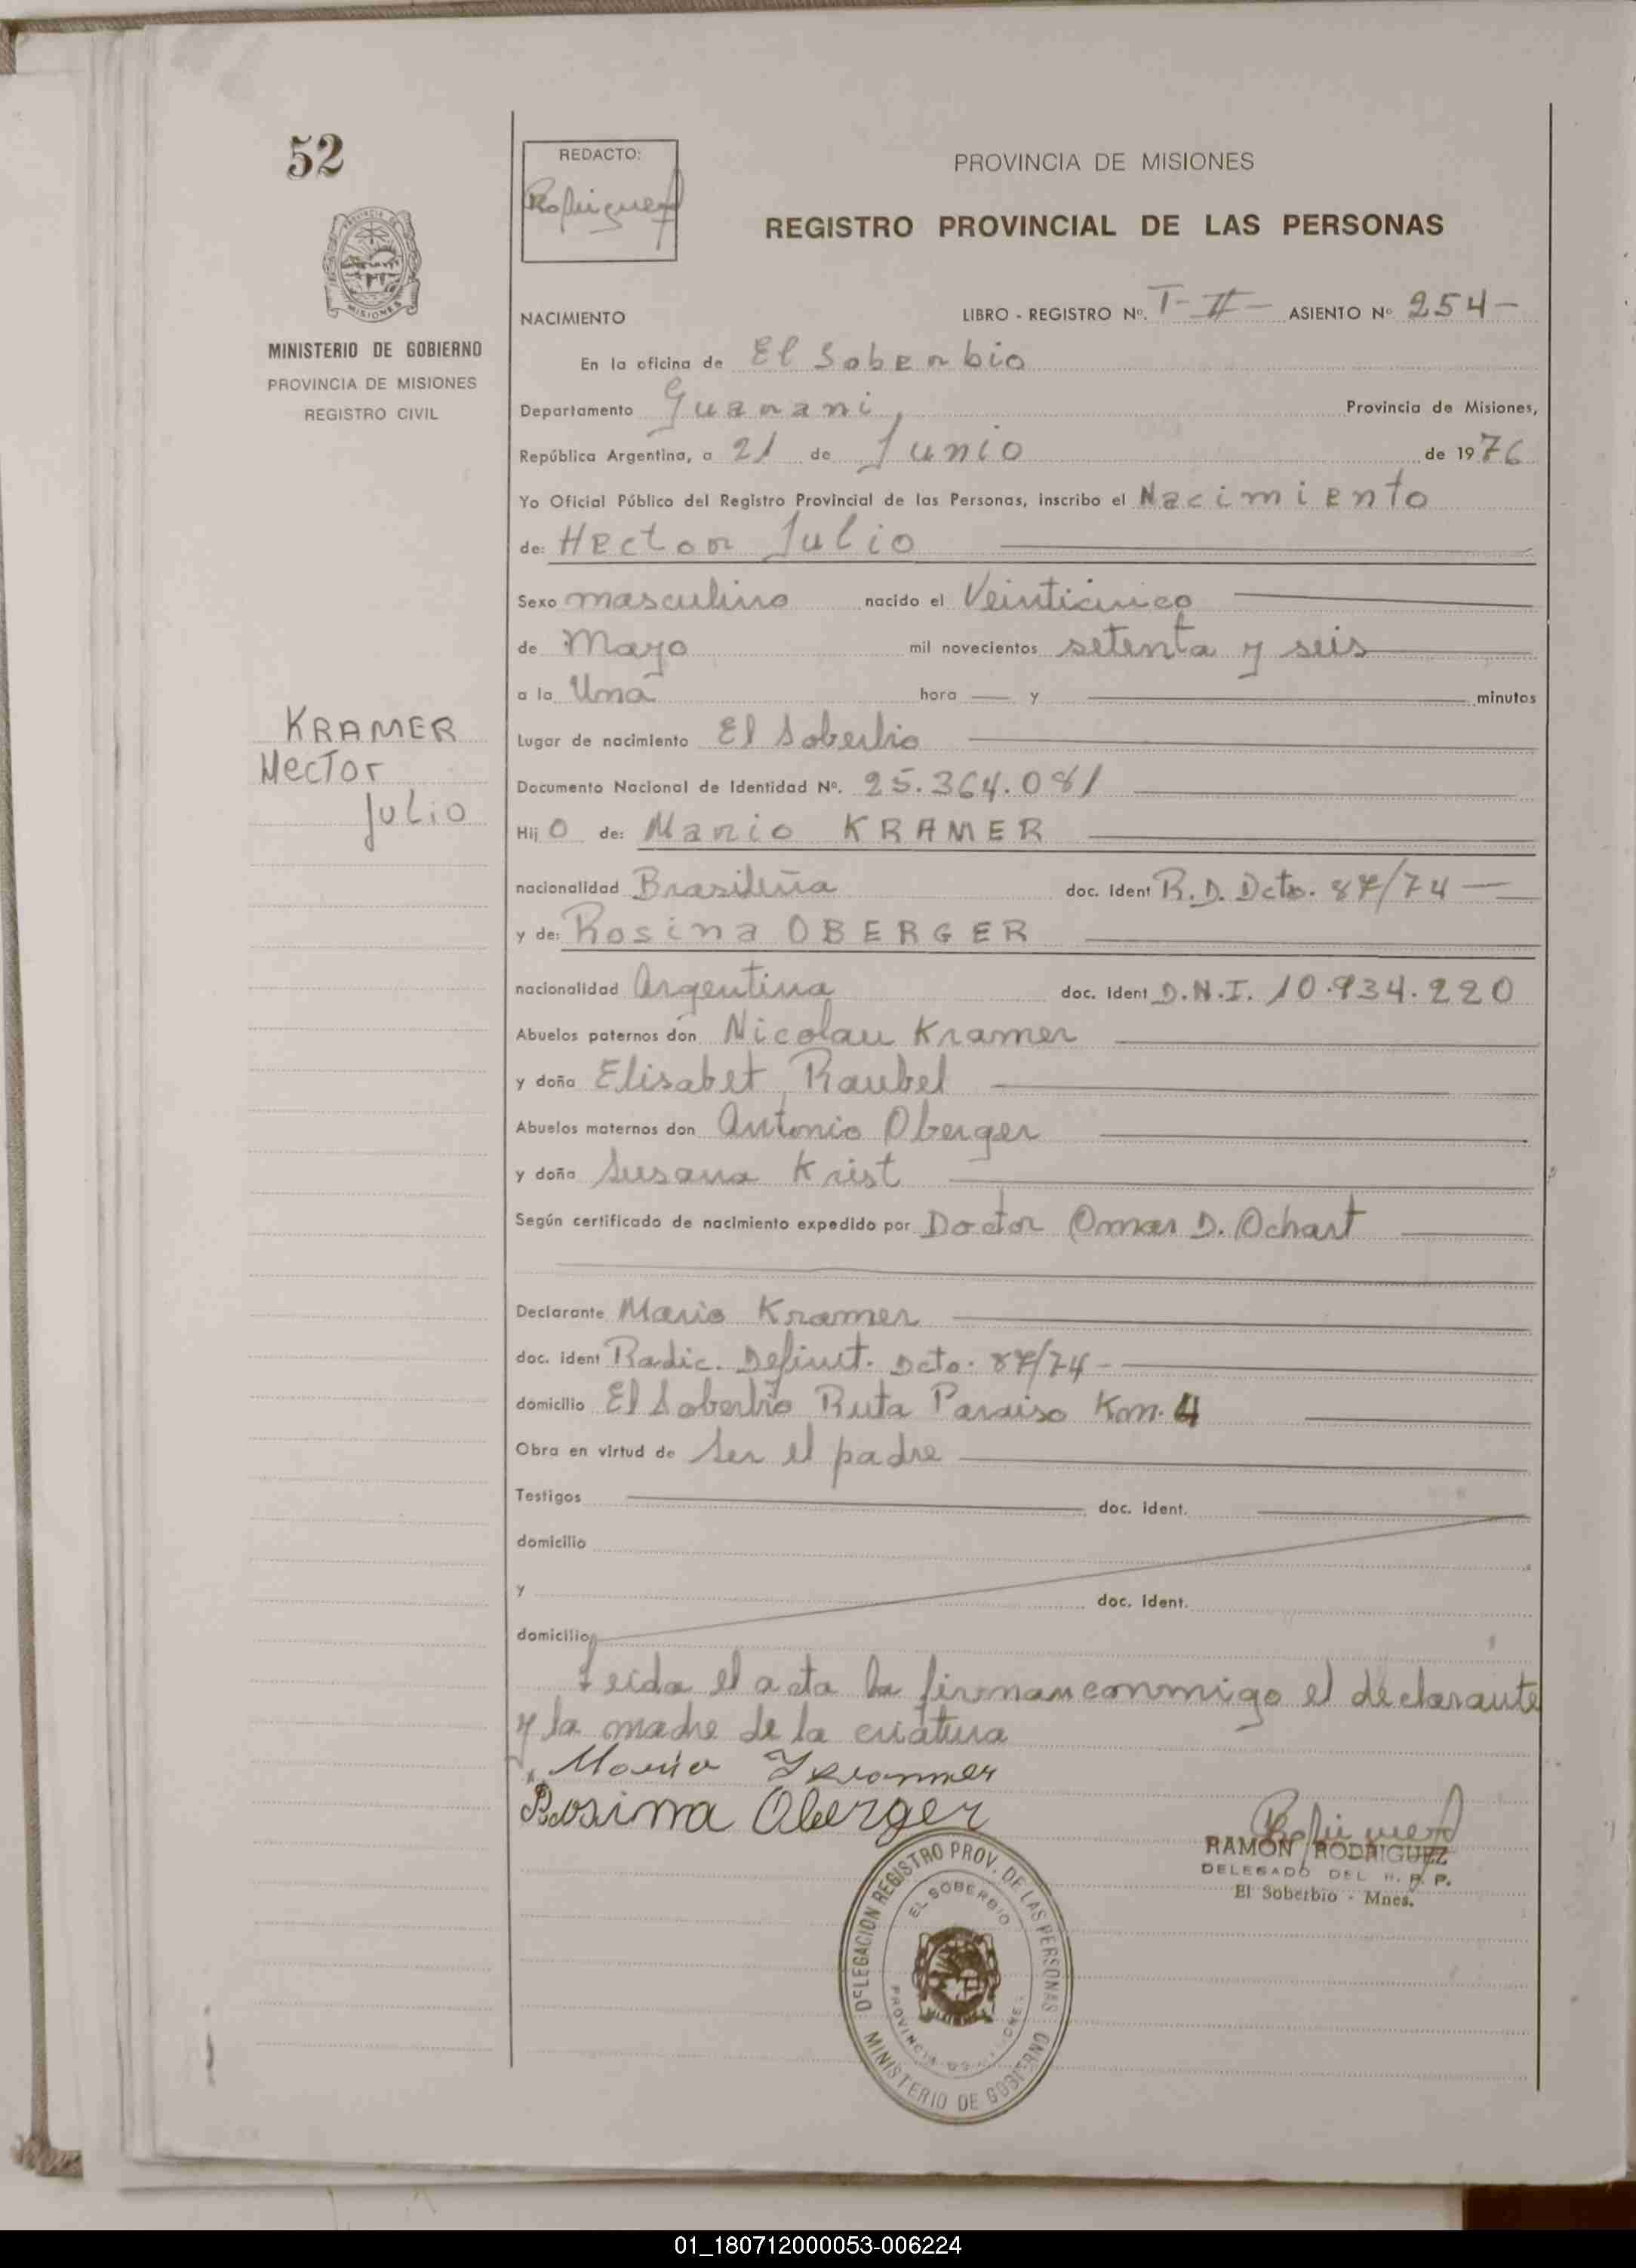 52
REDACTO:
Rodriguez
PROVINCIA DE MISIONES
REGISTRO PROVINCIAL DE LAS PERSONAS
MISIONES
MINISTERIO DE GOBIERNO
PROVINCIA DE MISIONES
REGISTRO CIVIL
NACIMIENTO LIBRO - REGISTRO Nº. T-II- ASIENTO Nº 254-
En la oficina de El Soberbio
Departamento Guarani, Provincia de Misiones,
República Argentina, a 21 de Junio de 1976
Yo Oficial Público del Registro Provincial de las Personas, inscribo el Nacimiento
de: Hector Julio
Sexo masculino nacido el Veinticinco
de Mayo mil novecientos setenta y seis
a la Una hora y minutos
KRAMER
Hector
Julio
Lugar de nacimiento El Soberbio
Documento Nacional de Identidad Nº. 25.364.081
Hij o de: Mario KRAMER
nacionalidad Brasileña doc. Ident R.D. Dcto. 87/74
y de: Rosina OBERGER
nacionalidad Argentina doc. Ident D.N.I. 10.934.220
Abuelos paternos don Nicolau Kramer
y doña Elisabet Raubel
Abuelos maternos don Antonio Oberger
y doña Susana Krist
Según certificado de nacimiento expedido por Doctor Omar D. Ochart
Declarante Mario Kramer
doc. ident Radic. Definit. Dcto. 87/74-
domicilio El Soberbio Ruta Paraiso Km. 4
Obra en virtud de Ser el padre
Testigos doc. ident.
domicilio
y doc. ident.
domicilio
Leida el acta la firman conmigo el declarante
y la madre de la criatura
Mario Kramer
Rosina Oberger
Rodriguez
RAMON RODRIGUEZ
DELEGADO DEL R. P. P.
El Soberbio - Mnes.
DELEGACION REGISTRO PROV. DE LAS PERSONAS
EL SOBERBIO
PROVINCIA DE MISIONES
MINISTERIO DE GOBIERNO
01_180712000053-006224